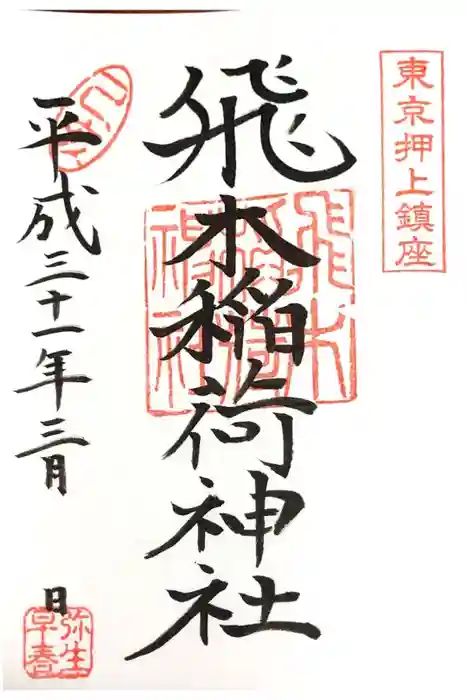 東京押上鎮座
飛木稲荷神社
平成三十一年三月 日
弥生
早春